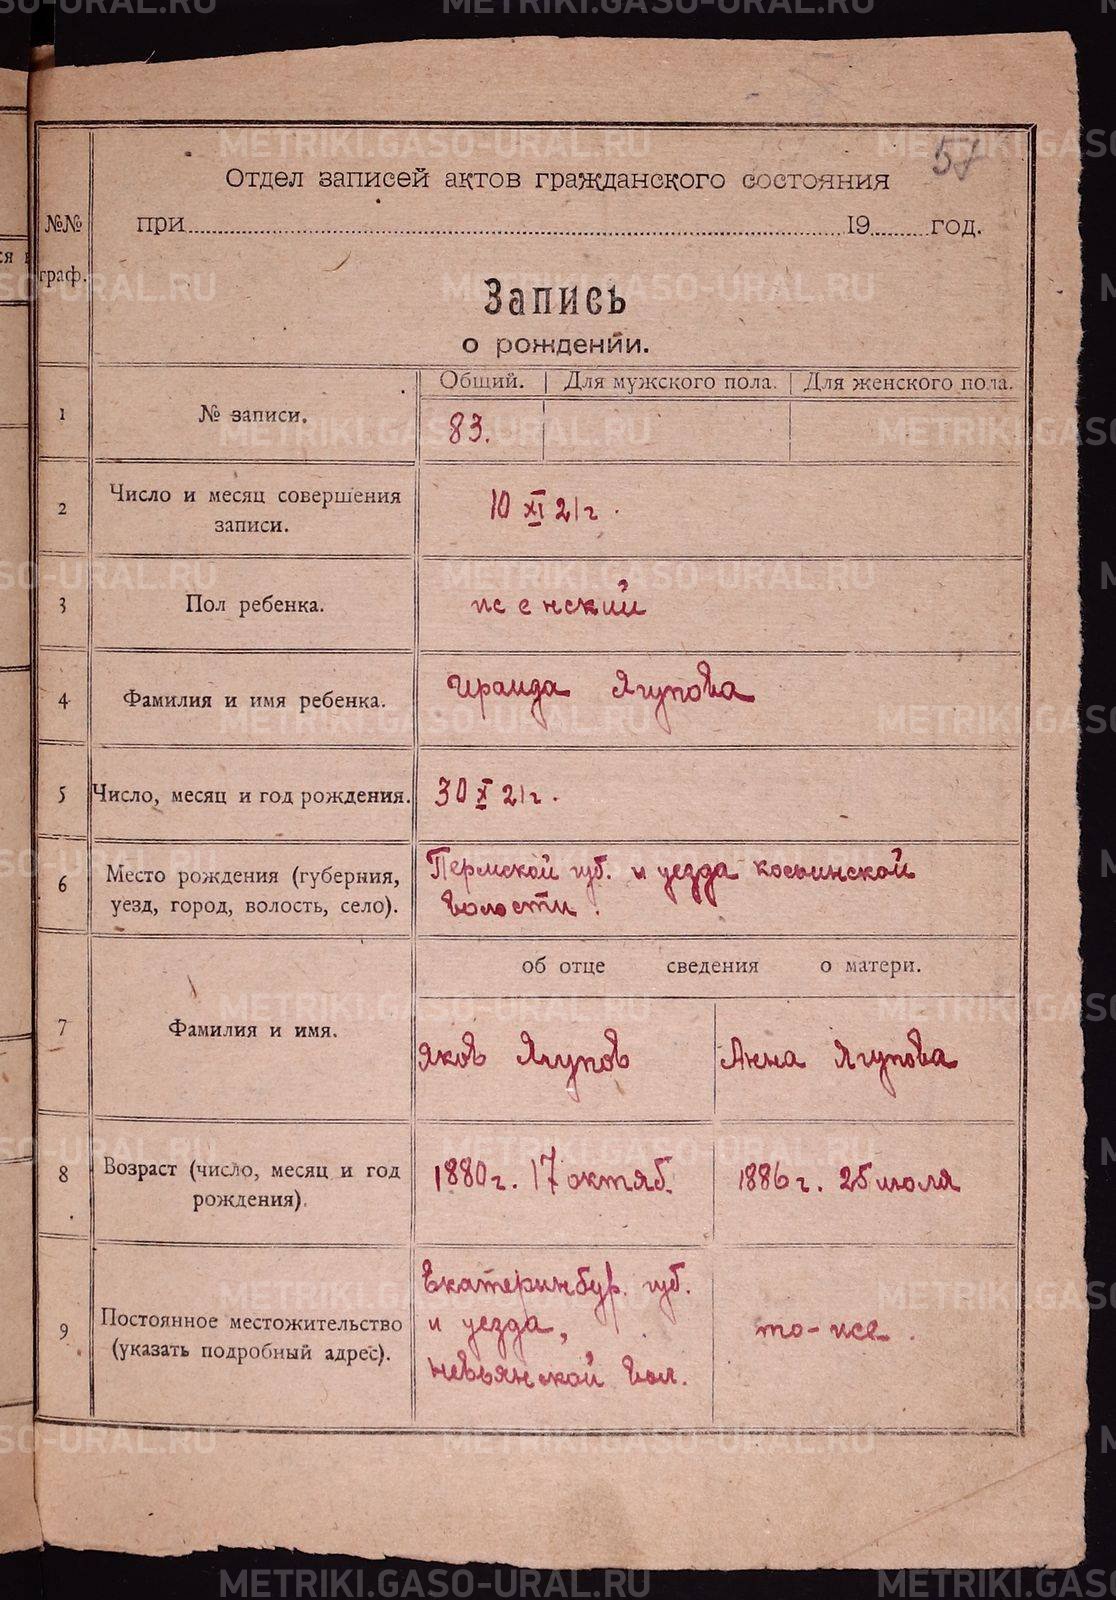 57
Отдел записей актов гражданского состояния
при 19 год.
№№ граф.
Запись
о рождении.
Общий. Для мужского пола. Для женского пола.
1 № записи. 83.
2 Число и месяц совершения записи. 10 XI 21 г.
3 Пол ребенка. женский
4 Фамилия и имя ребенка. Ираида Ягупова
5 Число, месяц и год рождения. 30 X 21 г.
6 Место рождения (губерния, уезд, город, волость, село). Пермской губ. и уезда косьинской
волости.
об отце сведения о матери.
7 Фамилия и имя. Яков Ягупов Анна Ягупова
8 Возраст (число, месяц и год рождения). 1880 г. 17 октяб. 1886 г. 25 июля
9 Постоянное местожительство (указать подробный адрес). Екатеринбур. губ.
и уезда,
невьянской вол.
то-же.
METRIKI.GASO-URAL.RU